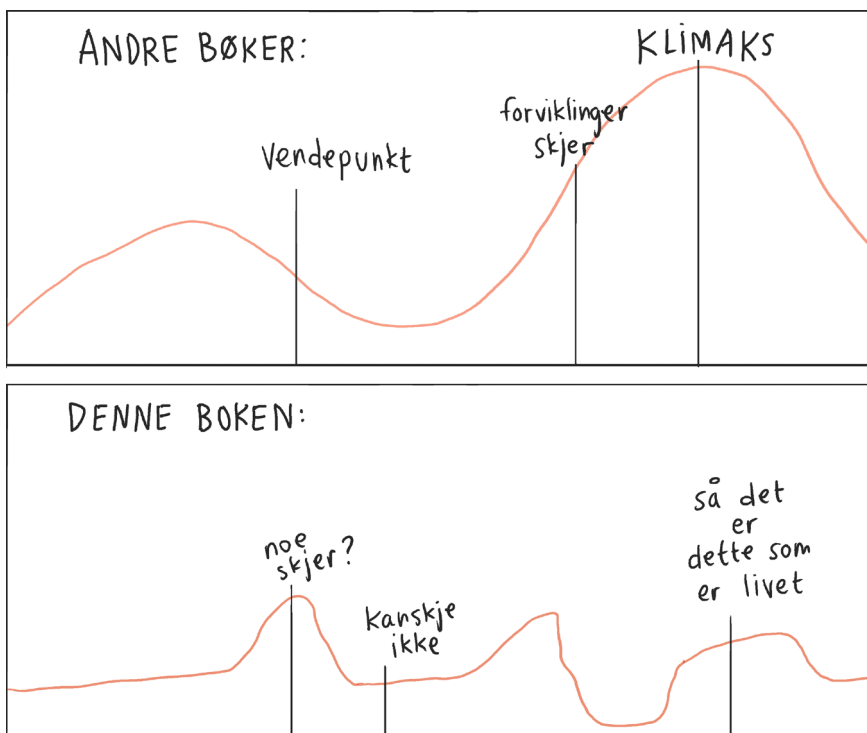 ANDRE BØKER:
KLIMAKS
forviklinger
skjer
Vendepunkt
DENNE BOKEN:
noe
skjer?
kanskje
ikke
så det
er
dette som
er livet